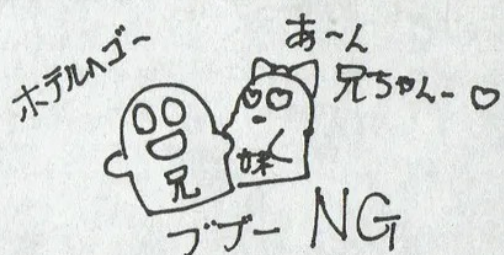 ホテルへゴー
あ～ん
兄ちゃん～♡
兄
妹
ブブー NG